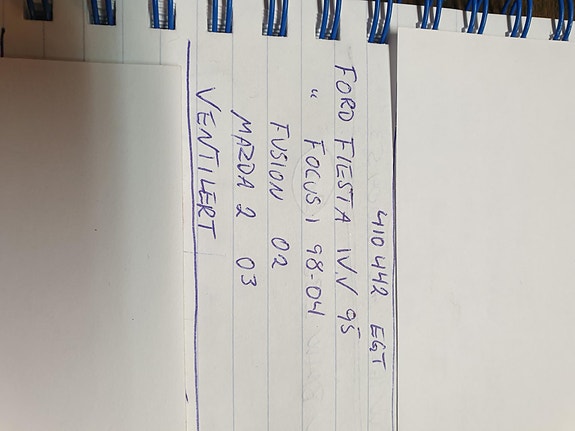 410442 EGT
FORD FIESTA IV,V 95
" FOCUS I 98-04
FUSION 02
MAZDA 2 03
VENTILERT